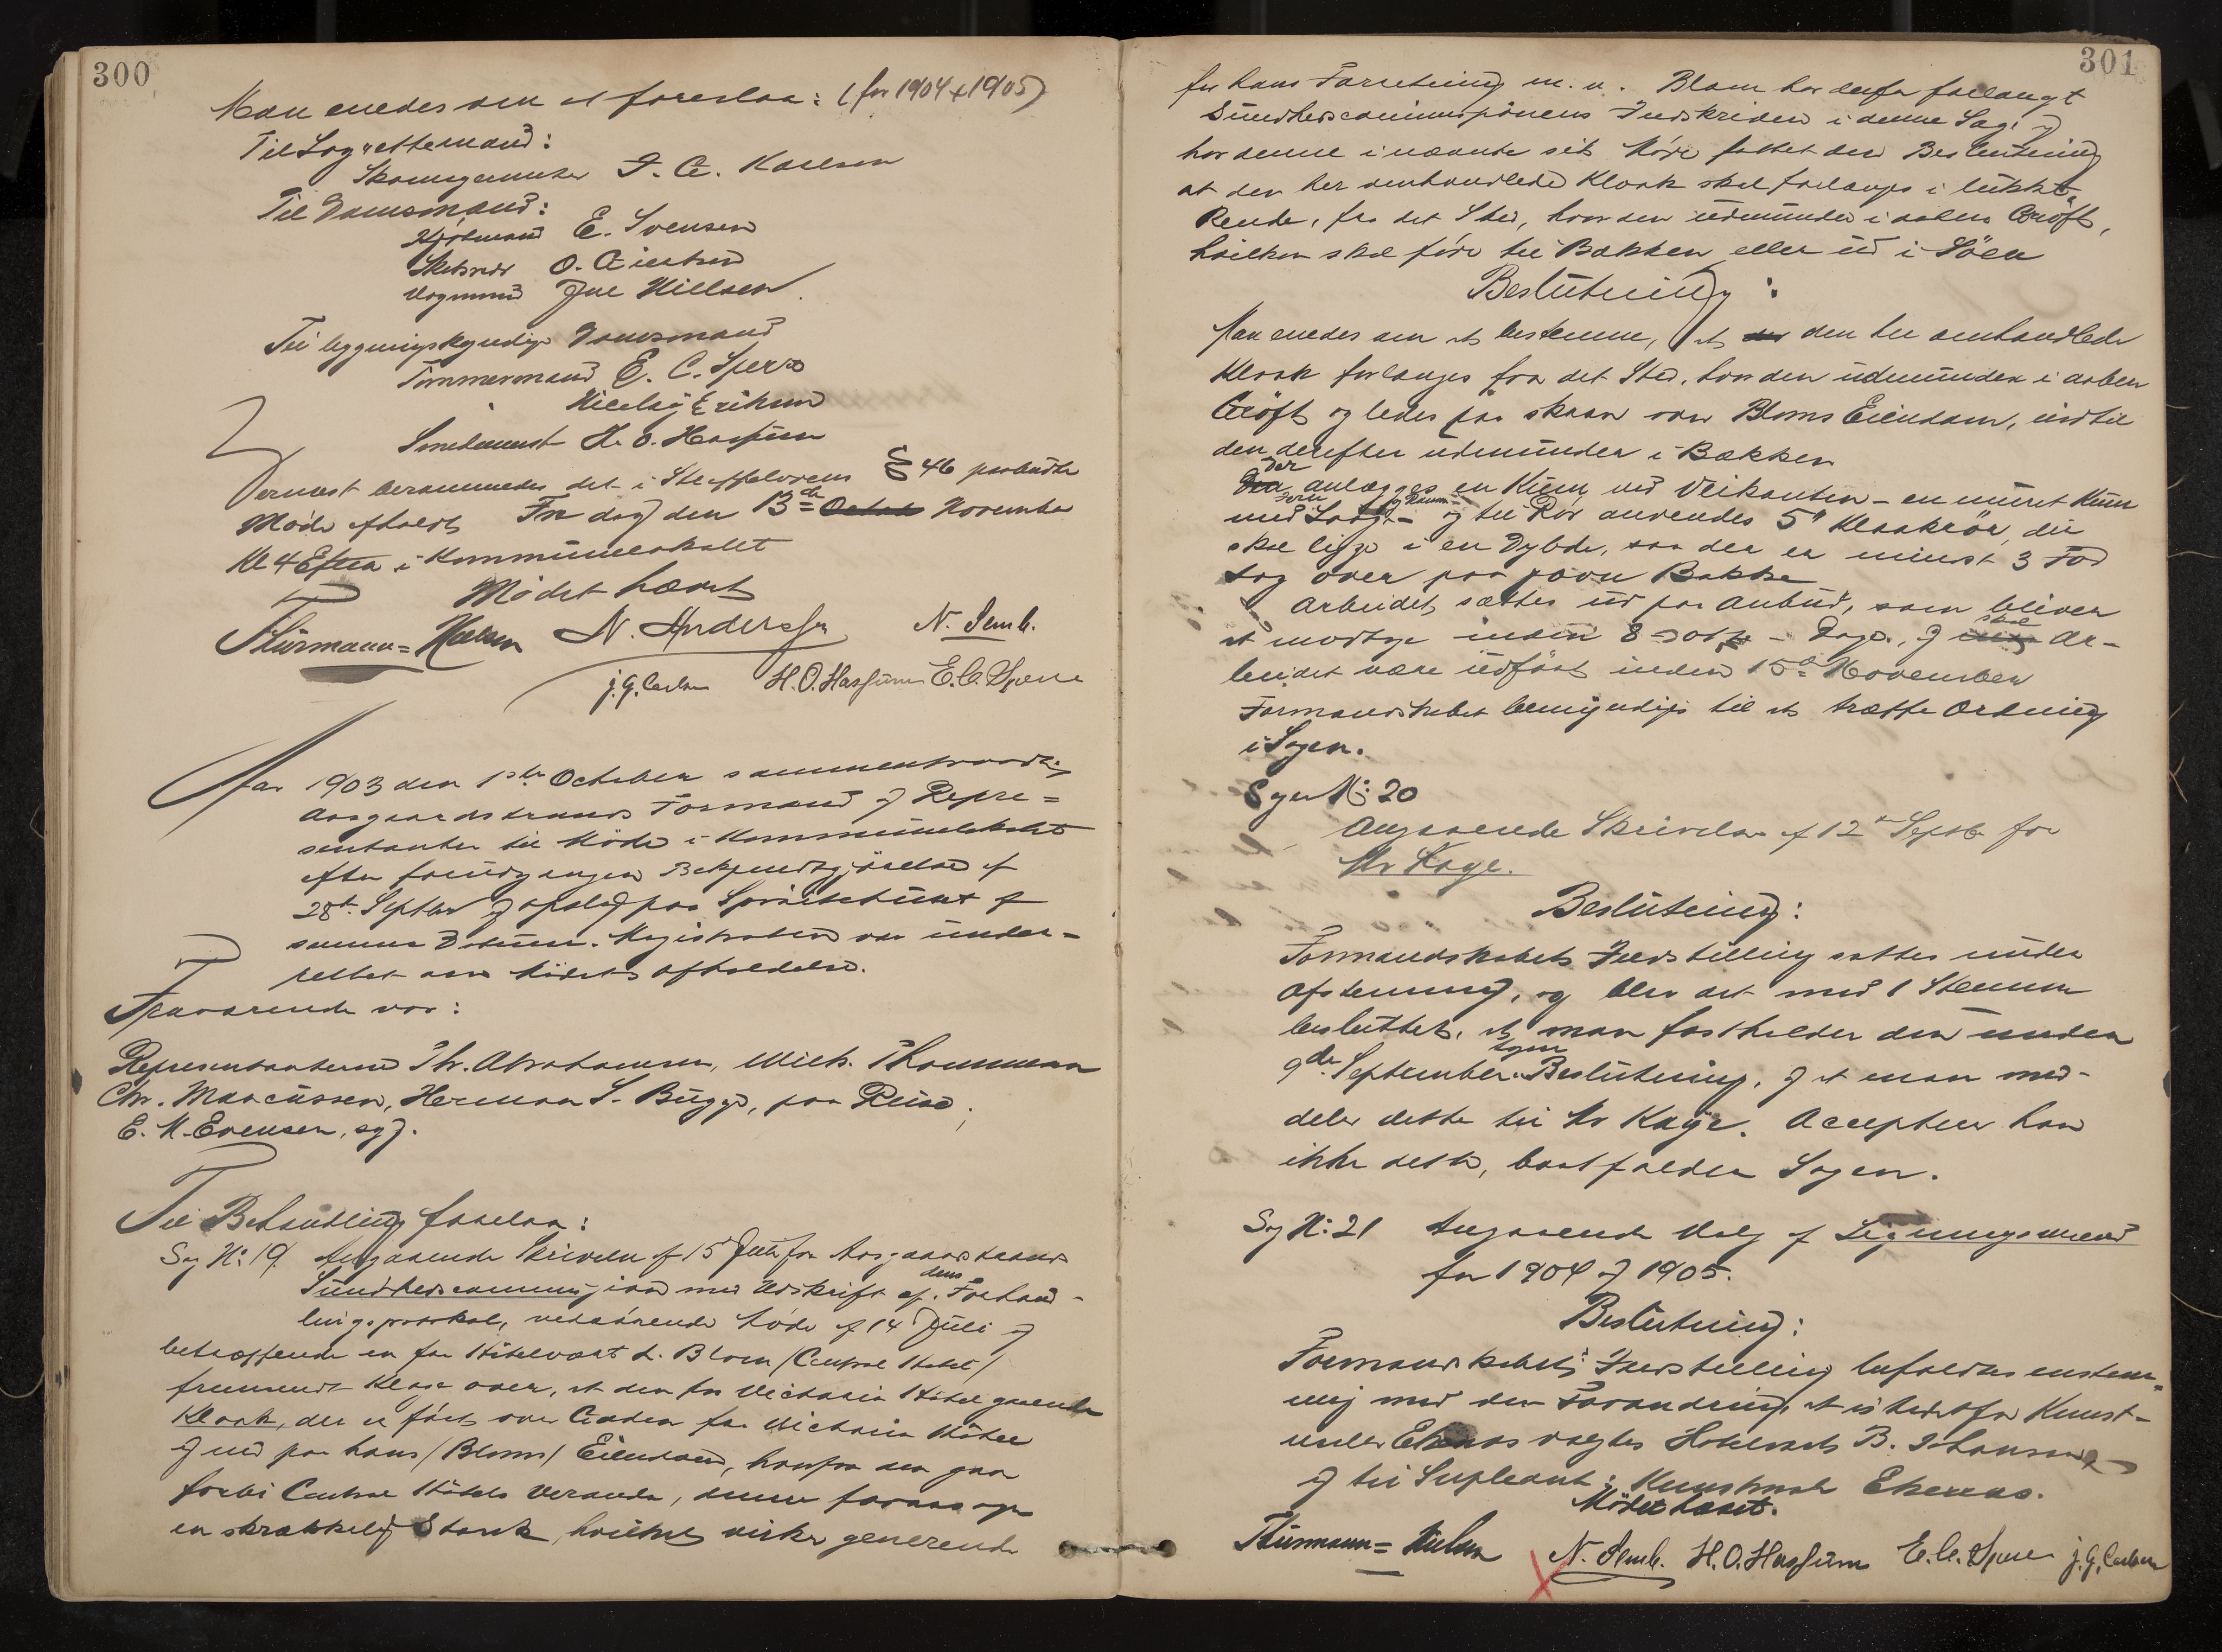 300
Man enedes om at foreslaa: (for 1904 & 1905)
Til Lagrettemand:
Skomagermester J. G. Karlsen
Til Domsmænd:
E. Svensen
O.
Joe Nielsen
Til bygningskyndige Domsmænd
Tømmermand E. C. Sperre
Nicolay Eriksen
H. O. Hasfjum
Dernæst berammedes det i Straffelovens § 46 paabudte
Møde afholdt Fredag den 13de Octob November
Kl 4 Efterm i Kommunelokalet
Mødet hævet
Thurmann=Nielsen N. Andersen N. Semb.
J. G. Carlsen H. O. Hasfjum E. C. Sperre
Aar 1903 den 1ste October sammentraadte
Aasgaardstrands Formænd og Repre=
sentanter til Møde i Kommunelokalet
efter forudgangen Bekjendtgjørelse af
28de Septbr og opslag paa Sprøitehuset af
samme Datum. Magistraten var under=
rettet om Mødets afholdelse.
Fraværende var:
Representanterne Th. Abrahamsen, Mich. Thommesen
Chr. Marcussen, Herman S. Bugge, paa Reise,
E. M. Evensen, syg.
Til Behandling forelaa:
Sag No: 19. Angaaende Skrivelse af 15 Juli fra Aasgaardstrands
Sundhedscommission med Udskrift af dens Forhand-
lingsprotokol, vedrørende Møde af 14 Juli og
betræffende en fra Hotelvært L. Blom /Central Hotel/
fremsendt Klage over, at den fra Victoria Hotel gaaende
Kloak, der er ført over Gaden fra Victoria Hotel
og ned paa hans /Bloms/ Eiendom, hvorfra den gaar
forbi Central Hotels Veranda, denne foraarsager
en skrækkelig Stank, hvilket virker generende
301
for hans Forretning m. v. Blom har derfor forlangt
Sundhedscommissionens Indskriden i denne Sag, og
har denne i nævnte sit Møde fattet den Beslutning
at den her omhandlede Kloak skal forlænges i lukket
Rende, fra det Sted, hvor den udmunder i aaben Grøft,
hvilken skal føre til Bækken eller ud i Søen
Beslutning:
Man enedes om at bestemme, at der den her omhandlede
Kloak forlænges fra det Sted, hvor den udmunder i aaben
Grøft og ledes paa skraa over Bloms Eiendom, indtil
den derefter udmunder i Bækken
Der anlægges en Kum ved Veikanten - en muret Kum
med - og til Rør anvendes 5" Kloakrør, der
skal ligge i en Dybde, saa der er mindst 3 Fod
Lag over paa jævn Bakke
Arbeidet sættes ud paa Anbud, som bliver
at modtage inden 8 - otte - Dage, og skal Ar-
beidet være udført inden 15de November
Formandskabet bemyndiges til at træffe Ordning
i Sagen.
Sag No: 20
Angaaende Skrivelse af 12te Septb. fra
Mr Kaye.
Beslutning:
Formandskabets Indstilling sattes under
Afstemning, og blev det med 1 Stemme
besluttet, at man fastholder den under
9de September tagne Beslutning, og at man med-
deler dette til Mr Kaye. Accepterer han
ikke dette, bortfalder Sagen.
Sag No: 21 Angaaende Valg af Ligningsmænd
for 1904 og 1905.
Beslutning:
Formandskabets Indstilling befaldes enstem=
mig med den Forandring, at istedetfor Kunst-
maler Ekenæs vælges Hotelvært B. Johansen
og til Supleant: Kunstmaler Ekenæs.
Mødet hævet.
Thurmann=Nielsen N. Semb. H. O. Hasfjum E. C. Sperre J. G. Carlsen